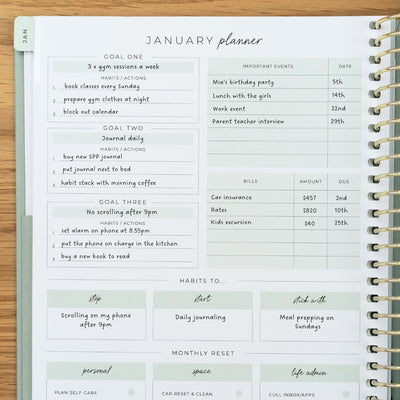 JAN
JANUARY planner
GOAL ONE
3 x gym sessions a week
HABITS / ACTIONS
1. book classes every Sunday
2. prepare gym clothes at night
3. block out calendar
GOAL TWO
Journal daily
HABITS / ACTIONS
1. buy new SPP journal
2. put journal next to bed
3. habit stack with morning coffee
GOAL THREE
No scrolling after 9pm
HABITS / ACTIONS
1. set alarm on phone at 8.55pm
2. put the phone on charge in the kitchen
3. buy a new book to read
IMPORTANT EVENTS DATE
Mia's birthday party 5th
Lunch with the girls 14th
Work event 22nd
Parent teacher interview 29th
BILLS AMOUNT DUE
Car insurance $457 2nd
Rates $820 10th
Kids excursion $40 25th
HABITS TO...
stop
Scrolling on my phone
after 9pm
start
Daily journaling
stick with
Meal prepping on
Sundays
MONTHLY RESET
personal
PLAN SELF-CARE
space
CAR RESET & CLEAN
life admin
CULL INBOX/APPS